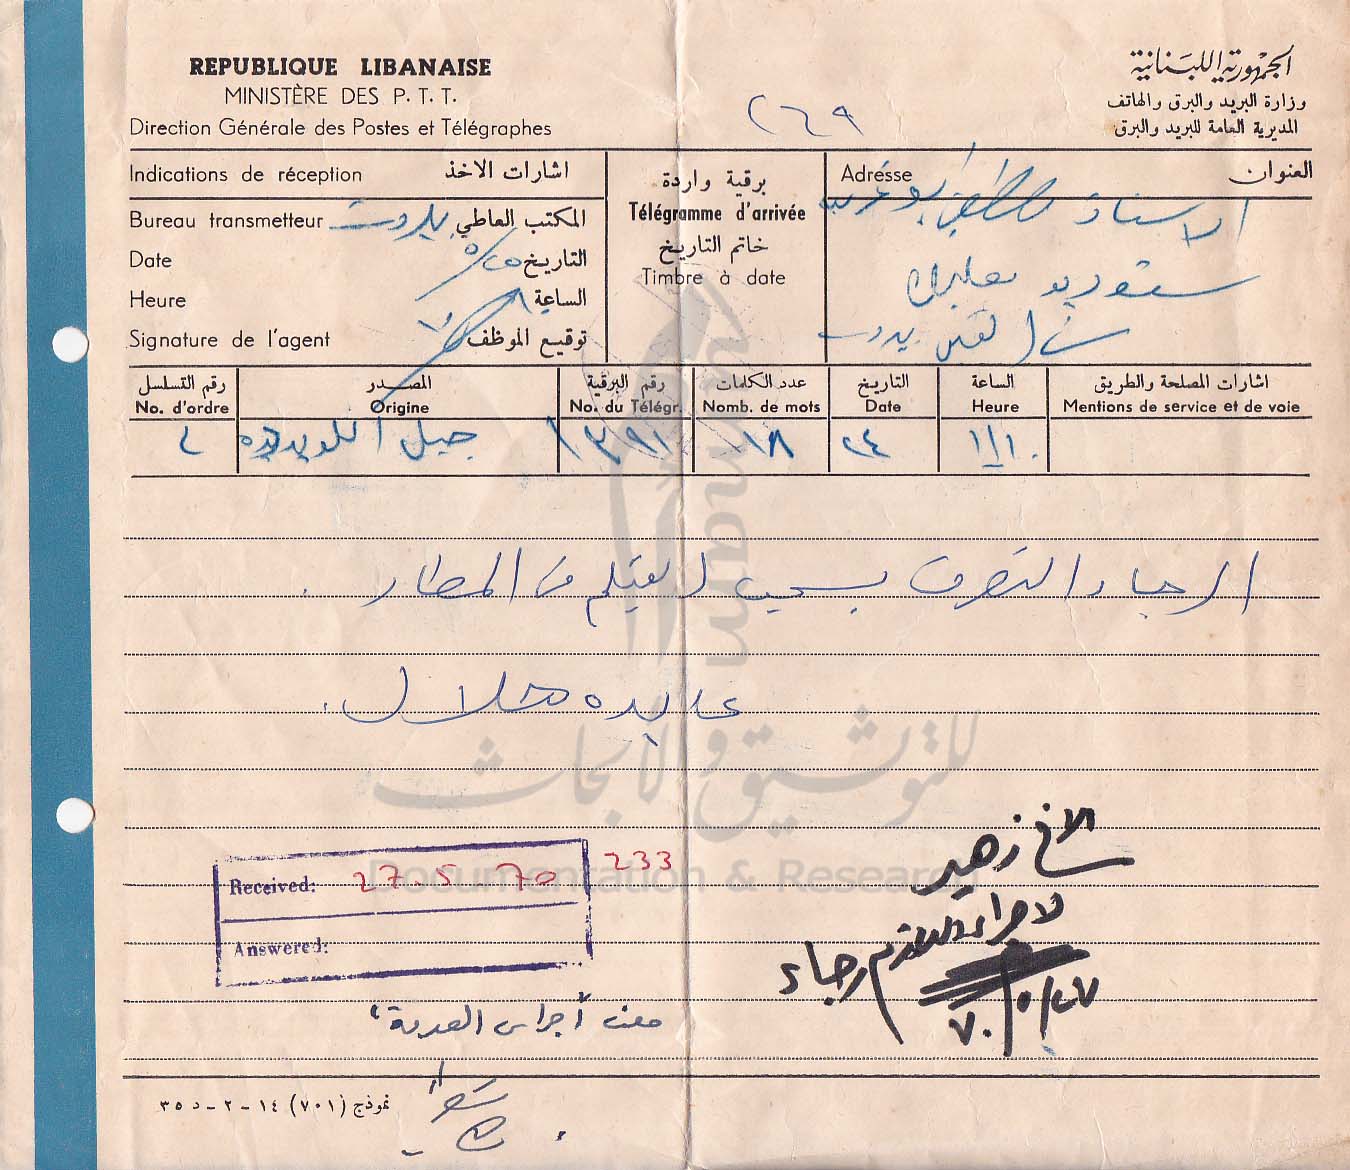 REPUBLIQUE LIBANAISE
MINISTÈRE DES P. T. T.
Direction Générale des Postes et Télégraphes
الجمهورية اللبنانية
وزارة البريد والبرق والهاتف
المديرية العامة للبريد والبرق
٢٦٩
Indications de réception اشارات الاخذ
Bureau transmetteur المكتب العاطي بيروت
Date التاريخ ٢٥/٥
Heure الساعة
Signature de l'agent توقيع الموظف
برقية واردة
Télégramme d'arrivée
خاتم التاريخ
Timbre à date
Adresse العنوان
الاستاذ
ستوديو بعلبك
سن الفيل بيروت
رقم التسلسل المصدر رقم البرقية عدد الكلمات التاريخ الساعة اشارات المصلحة والطريق
No. d'ordre Origine No. du Télégr. Nomb. de mots Date Heure Mentions de service et de voie
جبل اللويبده ١٣٩١ ١٨ ٢٤
الرجاء التصرف بسحب الفيلم من المطار .
عايده هلال .
Amam
للتوثيق والأبحاث
Documentation & Research
Received: 27.5 70 233
Answered:
الاخ زهير
لاجراء اللازم رجاء
٢٧/٥/٧٠
ملف "أجراس العودة"
نموذج (٧٠١) ١٤ - ٢ - د ٣٥